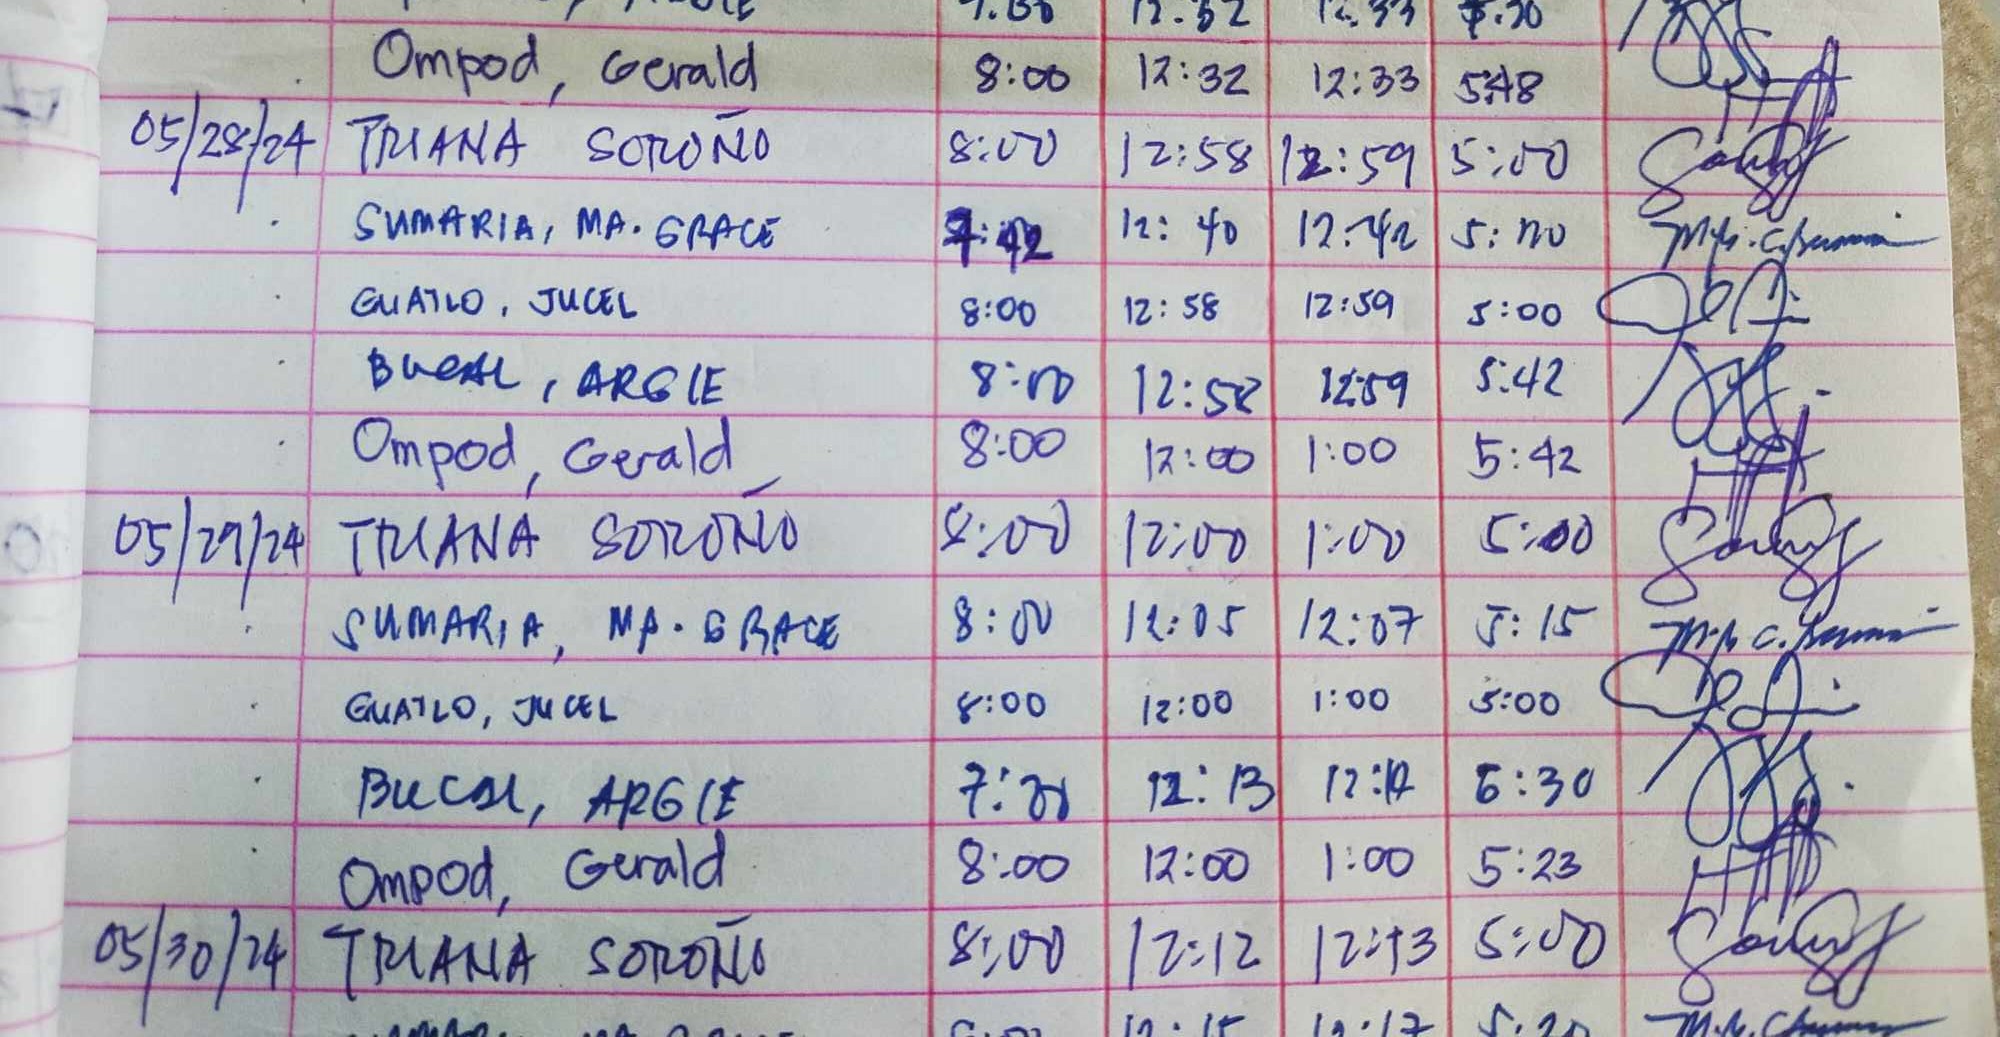 Ompod, Gerald 8:00 12:32 12:33 5:48
05/28/24 TRIANA SOROÑO 8:00 12:58 12:59 5:00
SUMARIA, MA. GRACE 7:42 12:40 12:42 5:20
GUATLO, JUCEL 8:00 12:58 12:59 5:00
BUCAL, ARGIE 8:00 12:58 12:59 5:42
Ompod, Gerald 8:00 12:00 1:00 5:42
05/29/24 TRIANA SOROÑO 8:00 12:00 1:00 5:00
SUMARIA, MA. GRACE 8:00 12:05 12:07 5:15
GUATLO, JUCEL 8:00 12:00 1:00 5:00
BUCAL, ARGIE 12:13 5:30
Ompod, Gerald 8:00 12:00 1:00 5:23
05/30/24 TRIANA SOROÑO 8:00 12:12 12:13 5:00
12:15 12:17 5:20